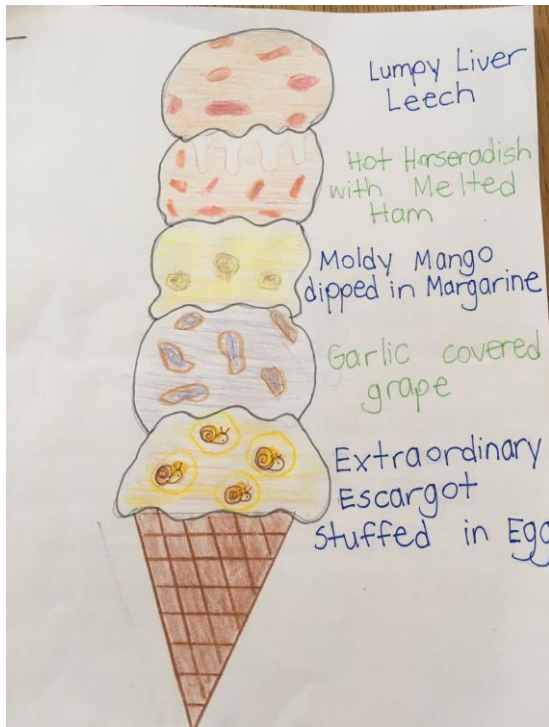 Lumpy Liver
Leech
Hot Horseradish
with Melted
Ham
Moldy Mango
dipped in Margarine
Garlic covered
grape
Extraordinary
Escargot
Stuffed in Egg